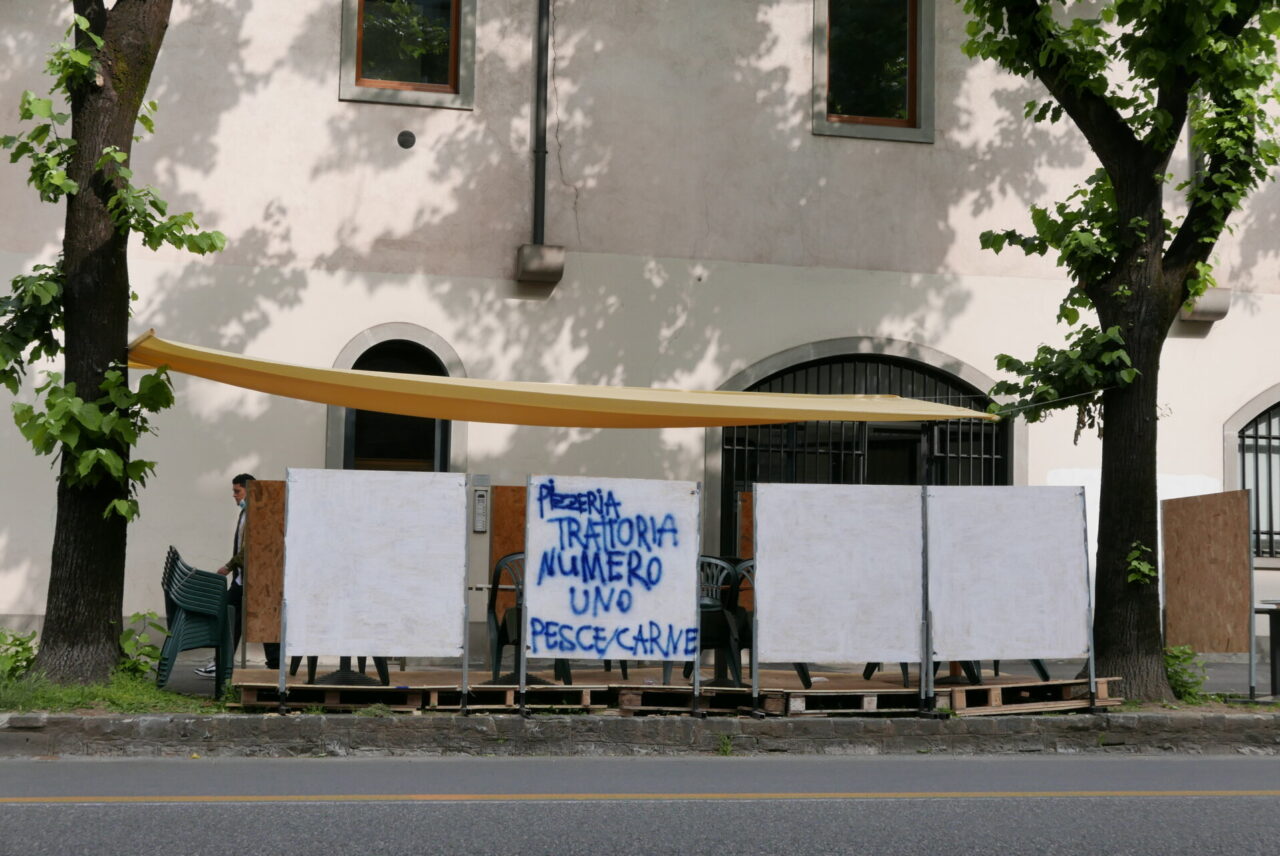 PIZZERIA
TRATTORIA
NUMERO
UNO
PESCE/CARNE